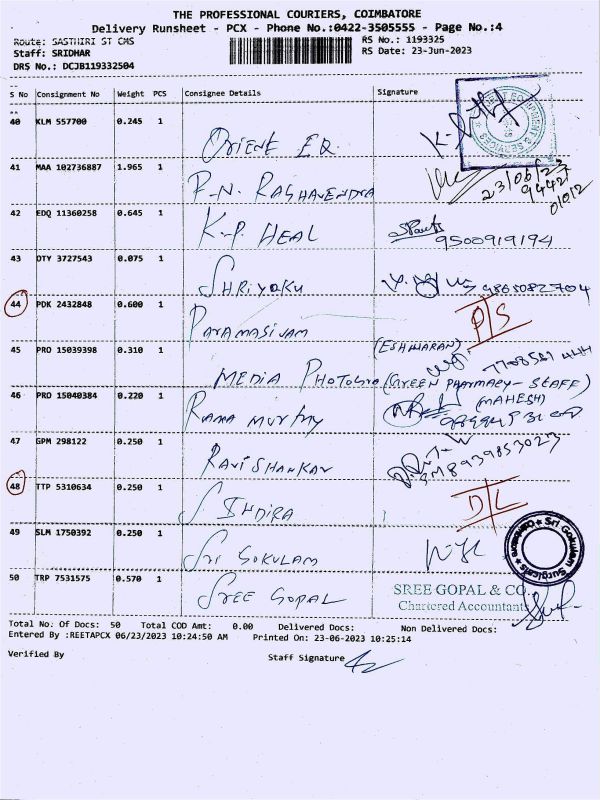 THE PROFESSIONAL COURIERS, COIMBATORE
Delivery Runsheet - PCX - Phone No.:0422-3505555 - Page No.:4
Route: SASTHIRI ST CMS RS No.: 1193325
Staff: SRIDHAR RS Date: 23-Jun-2023
DRS No.: DCJB119332504
S No Consignment No Weight PCS Consignee Details Signature
40 KLM 557700 0.245 1 ORIENE ER
41 MAA 102736887 1.965 1 P.N. RAGHAVENDRA 23/06/23
42 EDQ 11360258 0.645 1 K.P. HEAL 9500919194
43 DTY 3727543 0.075 1 SHRIYAKU 9865082704
44 PDK 2432848 0.600 1 PARAMASIVAM P/S
(ESHWARAN)
45 PRO 15039398 0.310 1 MEDIA PHOTO (GREEN PHARMACY - STAFF)
(MAHESH)
46 PRO 15040384 0.220 1 RAMA MURTHY
47 GPM 298122 0.250 1 RAVI SHANKAR 8939853023
48 TTP 5310634 0.250 1 S INDIRA D/L
49 SLM 1750392 0.250 1 SRI GOKULAM
Sri Gokulam Surgicals
50 TRP 7531575 0.570 1 SREE GOPAL SREE GOPAL & CO.
Chartered Accountants
Total No. Of Docs: 50 Total COD Amt: 0.00 Delivered Docs: Non Delivered Docs:
Entered By :REETAPCX 06/23/2023 10:24:50 AM Printed On: 23-06-2023 10:25:14
Verified By Staff Signature